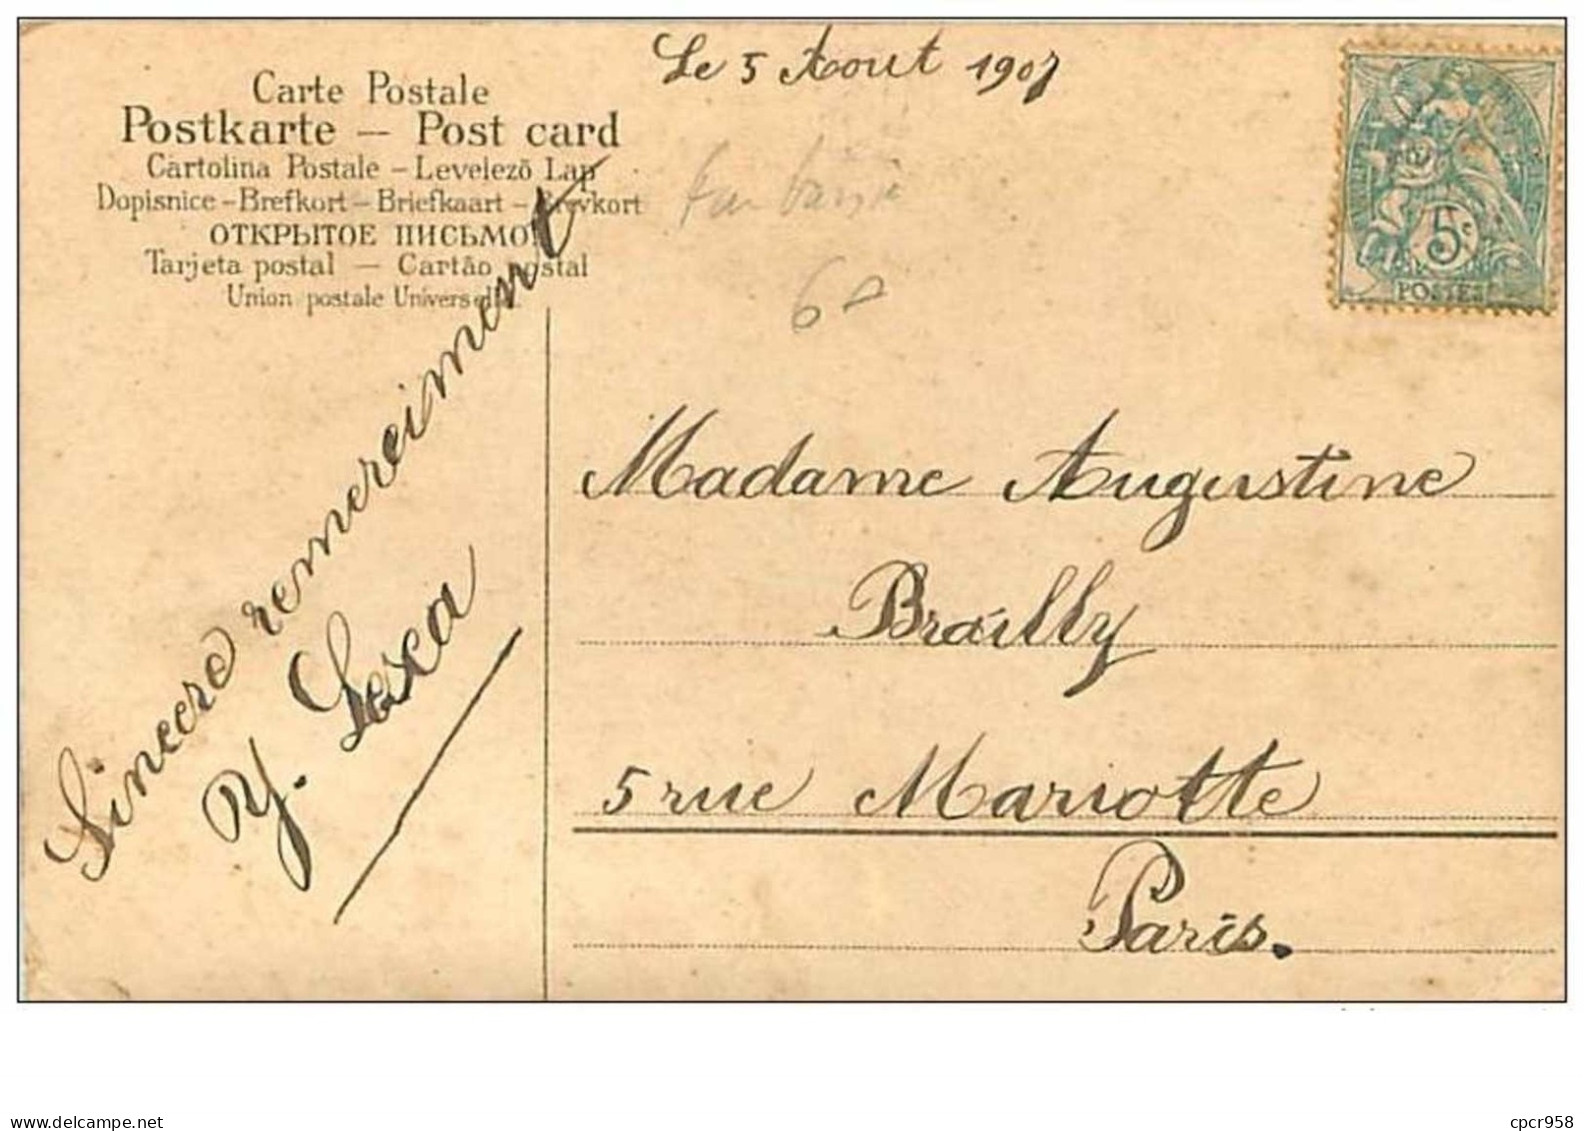 Le 5 Aout 1907
Carte Postale
Postkarte – Post card
Cartolina Postale – Levelezõ Lap
Dopisnice – Brefkort – Briefkaart – Brevkort
ОТКРЫТОЕ ПИСЬМО
Tarjeta postal — Cartão postal
Union postale Universelle.
fantaisie
5c
POSTES
Sincere remereiment
Y. Lesca
Madame Augustine
Brailly
5 rue Mariotte
Paris.
delcampe.net
cpcr958